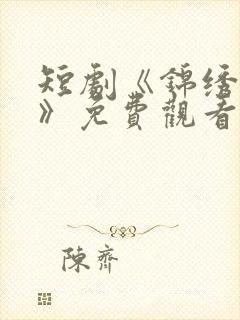 短劇《錦绣
》免費觀看
陳齊